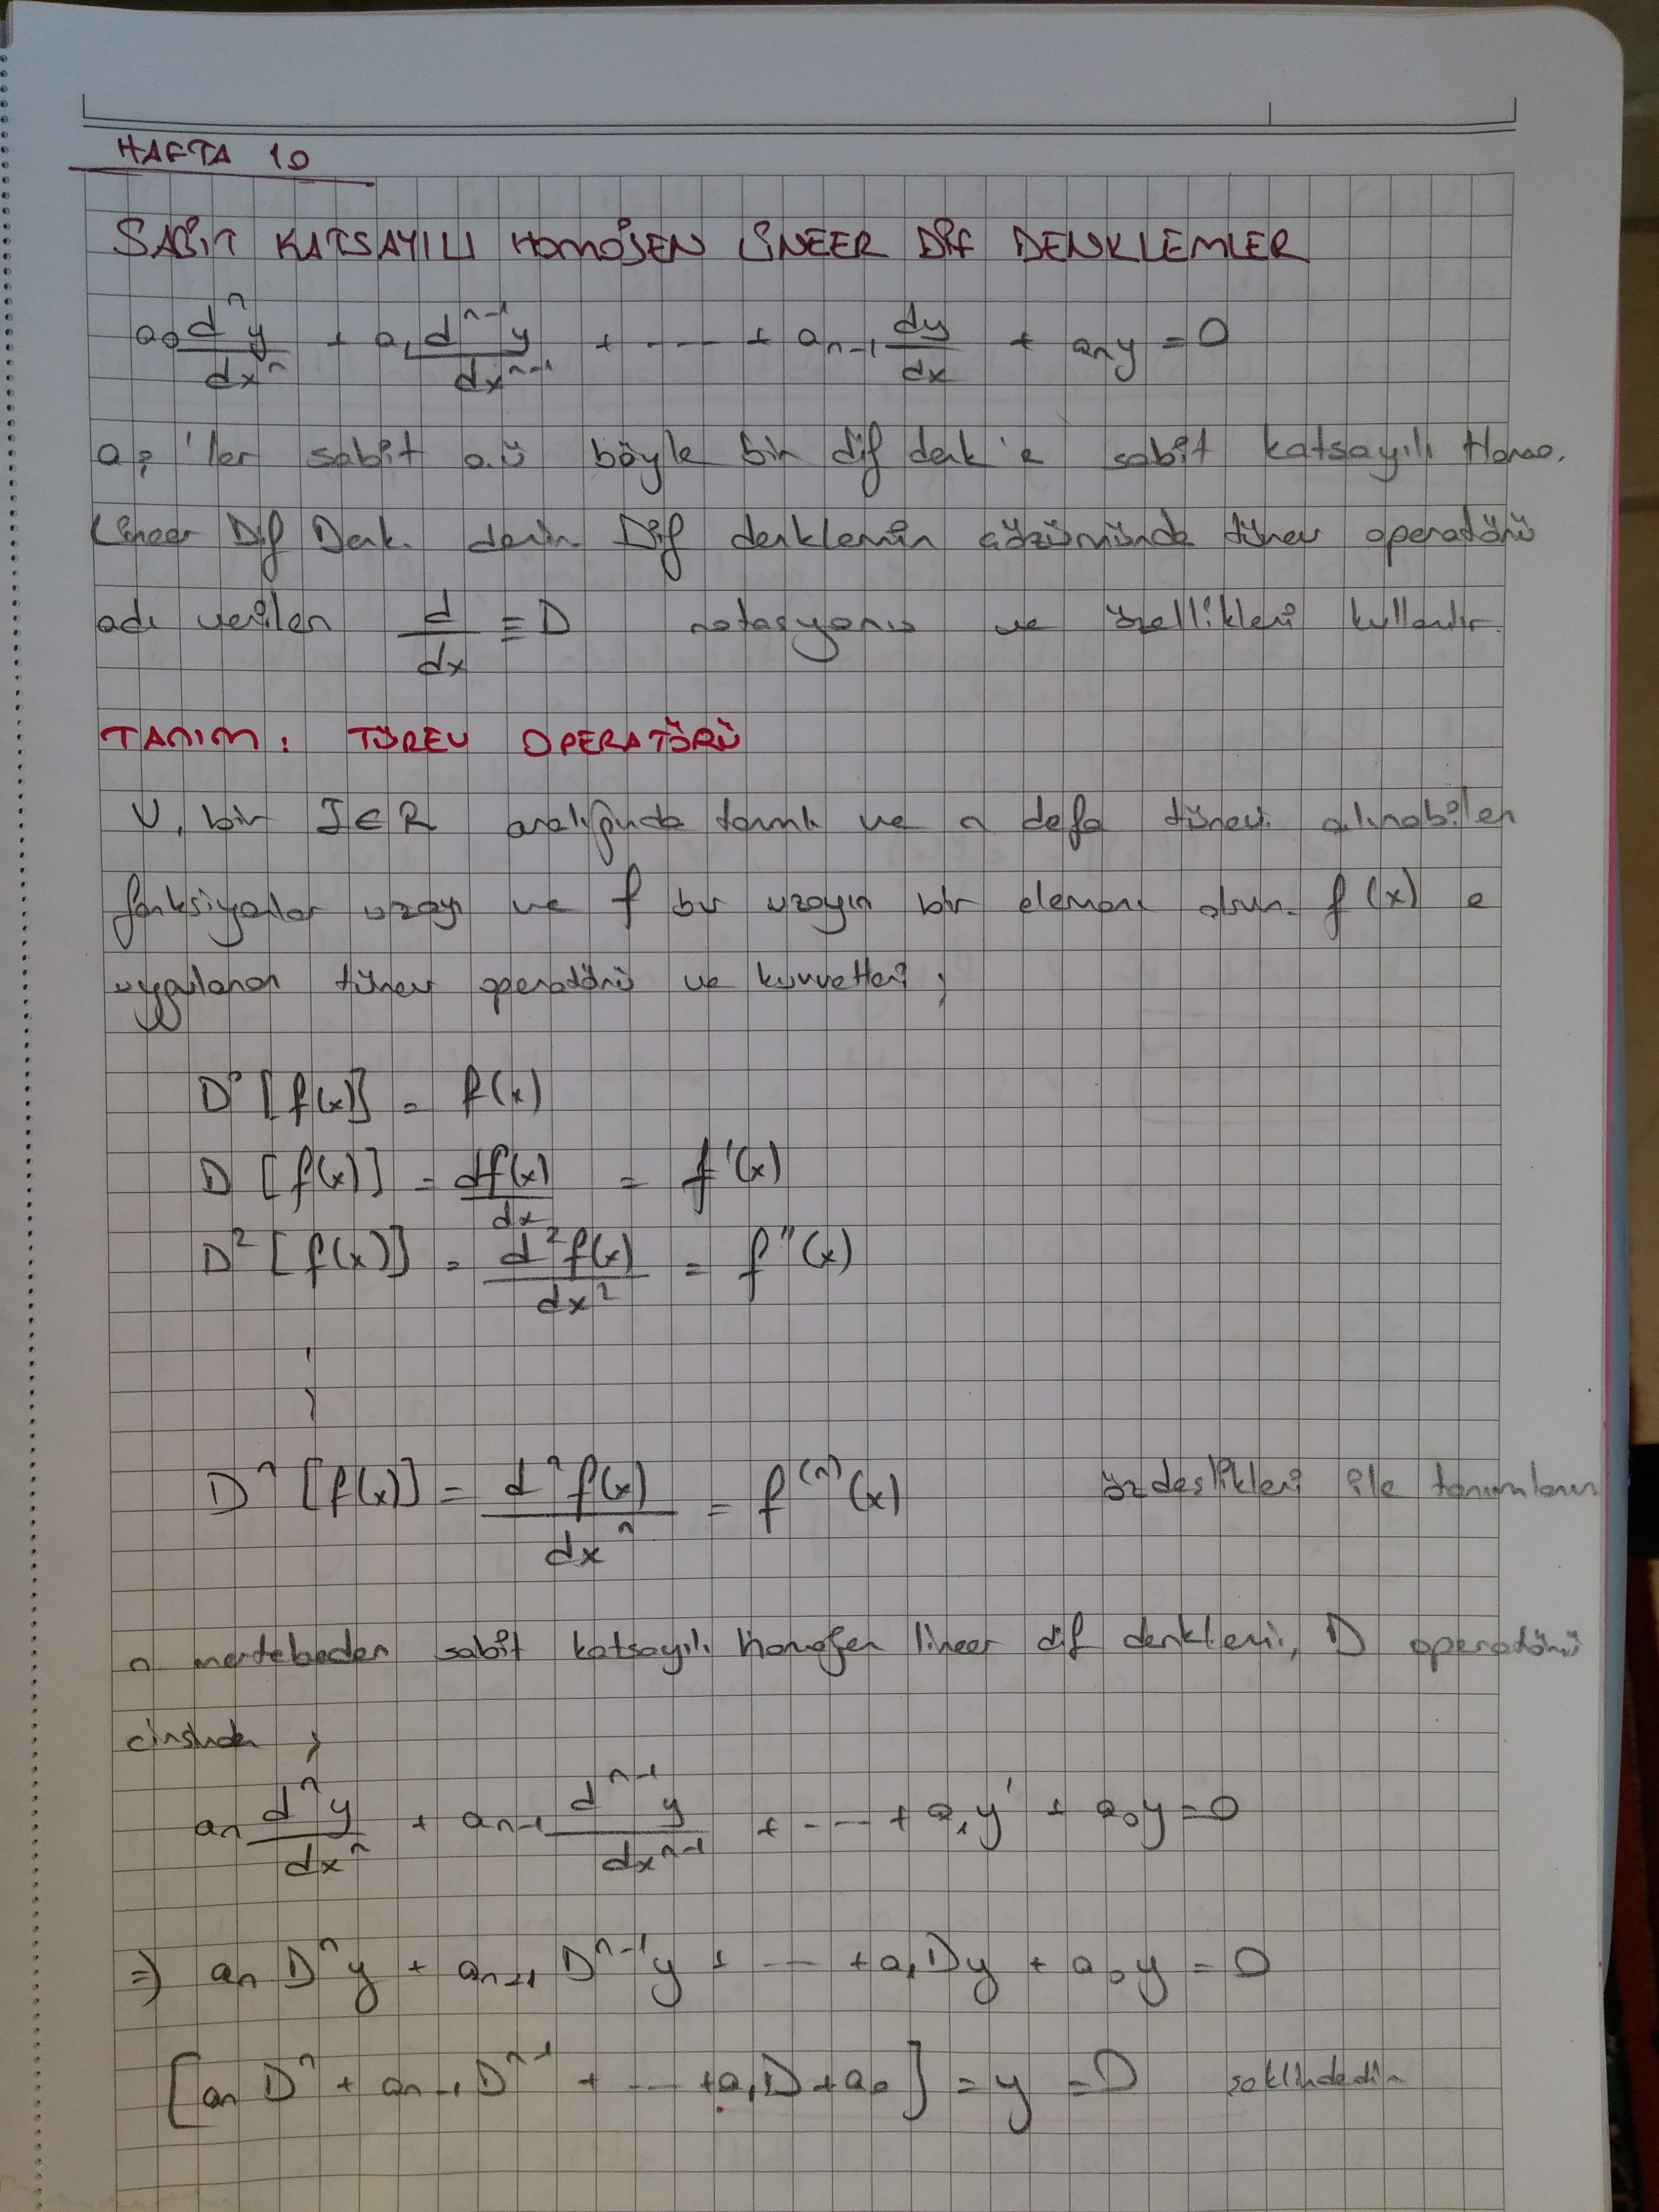 HAFTA 10
SABİT KATSAYILI HOMOJEN LİNEER DİF DENKLEMLER
a₀ dⁿy/dxⁿ + a₁ dⁿ⁻¹y/dxⁿ⁻¹ + ---- + aₙ₋₁ dy/dx + aₙy = 0
aᵢ 'ler sabit o.ü böyle bir dif denk'e sabit katsayılı Homo.
Lineer Dif Denk. denir. Dif denklemin çözümünde türev operatörü
adı verilen d/dx ≡ D notasyonu ve özellikleri kullanılır.
TANIM: TÜREV OPERATÖRÜ
V, bir I∈R aralığında tanımlı ve n defa türevi alınabilen
fonksiyonlar uzayı ve f bu uzayın bir elemanı olsun. f(x) e
uygulanan türev operatörü ve kuvvetleri;
D⁰[f(x)] = f(x)
D [f(x)] = df(x)/dx = f'(x)
D²[f(x)] = d²f(x)/dx² = f''(x)
Dⁿ[f(x)] = dⁿf(x)/dxⁿ = f⁽ⁿ⁾(x) özdeslikleri ile tanımlanır
n mertebeden sabit katsayılı homojen lineer dif denklemi, D operatörü
cinsinden ;
aₙ dⁿy/dxⁿ + aₙ₋₁ dⁿ⁻¹y/dxⁿ⁻¹ + ---- + a₁y' + a₀y = 0
⇒) aₙ Dⁿy + aₙ₋₁ Dⁿ⁻¹y + ---- + a₁Dy + a₀y = 0
[aₙ Dⁿ + aₙ₋₁Dⁿ⁻¹ + ---- + a₁D + a₀] = y = D seklindedir